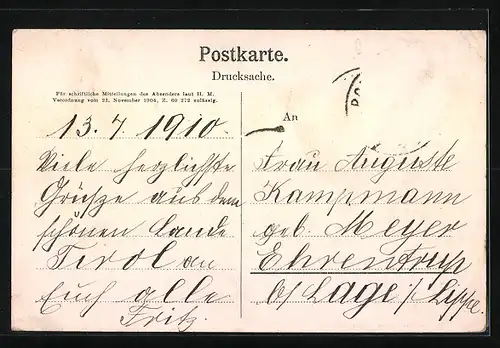 Postkarte.
Drucksache.
Für schriftliche Mitteilungen des Absenders laut H. M.
Verordnung vom 23. November 1904, Z. 60 272 zulässig.
13. 7. 1910.
Viele herzlichste
Grüsze aus dem
schönen Lande
Tirol an
Euch alle
Fritz.
An
Frau Auguste
Kampmann
geb. Meyer
Ehrentrup
b/ Lage i/ Lippe.